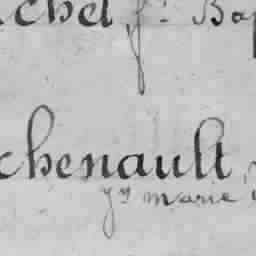 chel f: Bap
chenault,
marie